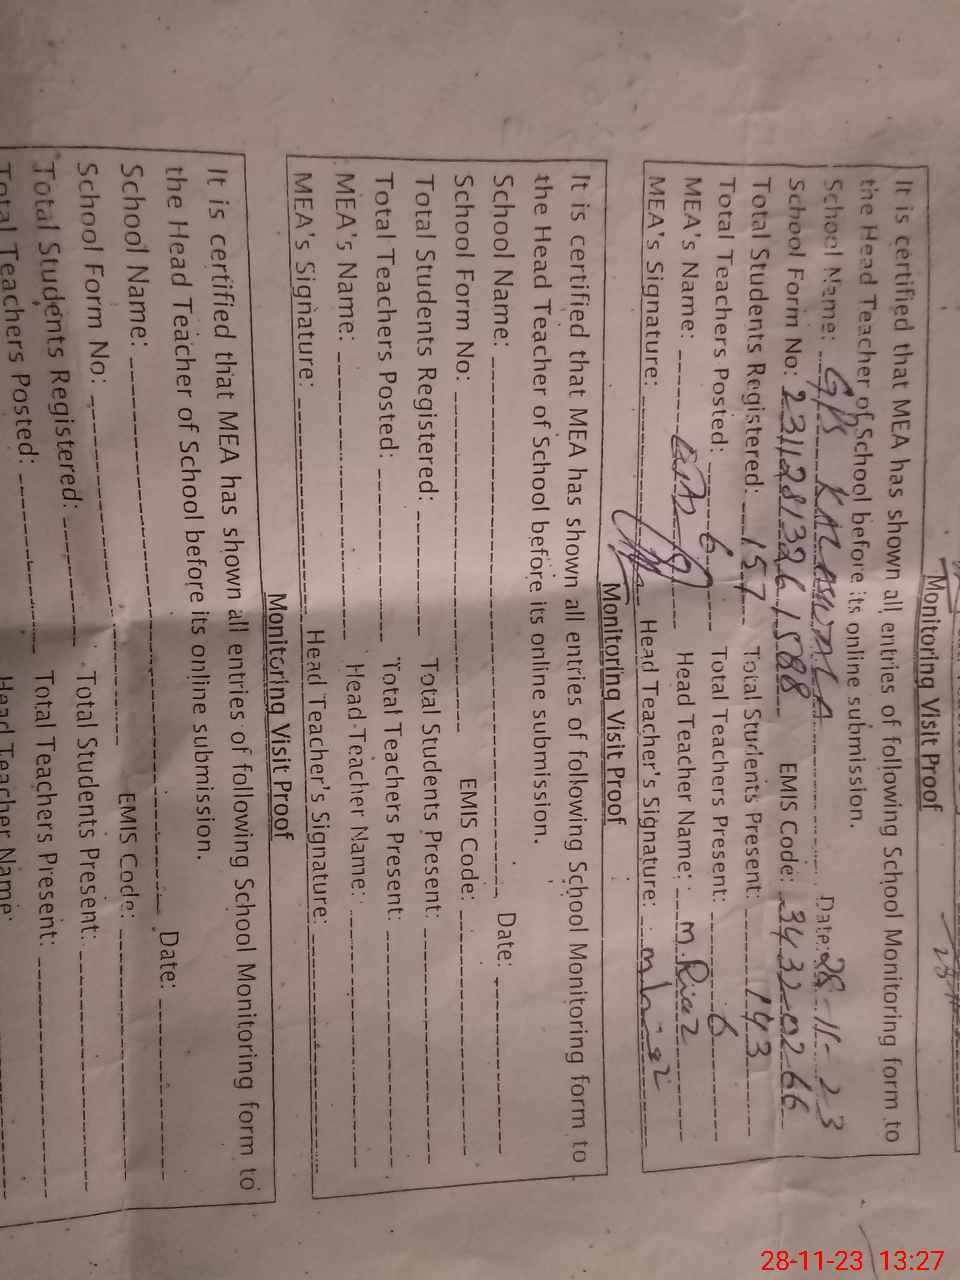 Monitoring Visit Proof
It is certified that MEA has shown all entries of following School Monitoring form to
the Head Teacher of School before its online submission.
School Name: GPS KALASWALA Date: 28-11-23
School Form No: 23112813261588 EMIS Code: 34320266
Total Students Registered: 157 Total Students Present: 143
Total Teachers Posted: 6 Total Teachers Present: 6
MEA's Name: Head Teacher Name: M. Riaz
MEA's Signature: Head Teacher's Signature:
Monitoring Visit Proof
It is certified that MEA has shown all entries of following School Monitoring form to
the Head Teacher of School before its online submission.
School Name: Date:
School Form No: EMIS Code:
Total Students Registered: Total Students Present:
Total Teachers Posted: Total Teachers Present:
MEA's Name: Head Teacher Name:
MEA's Signature: Head Teacher's Signature:
Monitoring Visit Proof
It is certified that MEA has shown all entries of following School Monitoring form to
the Head Teacher of School before its online submission.
School Name: Date:
School Form No: EMIS Code:
Total Students Registered: Total Students Present:
Total Teachers Posted: Total Teachers Present:
Head Teacher Name:
28-11-23 13:27